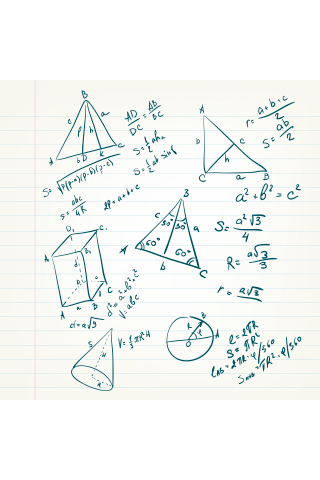 B
c
a
β
h
A
b
D
K
C
AD/DC = AB/BC
S=1/2 ah
S=1/2 ab sinβ
S=√p(p-a)(p-b)(p-c)
S=abc/4R
2P=a+b+c
A
b
c
h
C
a
B
r=a+b+c/2
S=ab/2
a²+b²=c²
B
c
30°
30°
a
A
60°
60°
b
C
S=a²√3/4
R=a√3/3
r=a√3
D₁
C₁
A₁
D
C
A
a
B
b
c
d²=a²+b²+c²
V=abc
d=a√3
S
H
R
V=1/3 πR²H
B
R
φ
ℓ
O
A
ℓ=2πR
S=πR²
ℓAB=2πR·φ/360
SAOB=πR²·φ/360